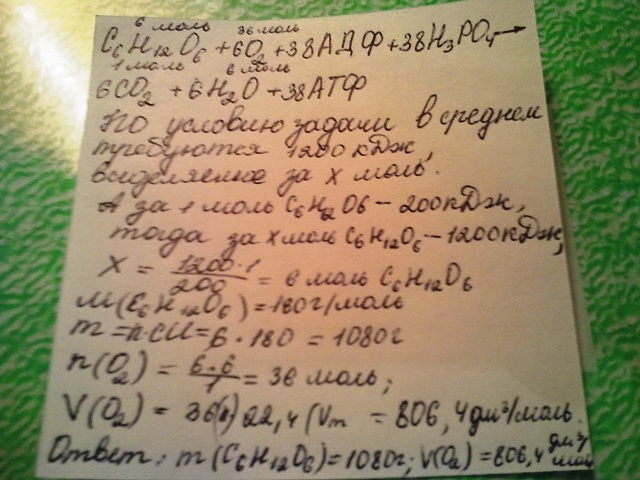 6 моль 36 моль
C6H12O6 + 6O2 + 38АДФ + 38H3PO4 →
1 моль 6 моль
6CO2 + 6H2O + 38АТФ
По условию задачи в среднем
требуются 1200 кДж,
выделяемое за x моль.
А за 1 моль C6H2O6 – 200кДж,
тогда за x моль C6H12O6 – 1200кДж,
X = 1200·1/200 = 6 моль C6H12O6
M(C6H12O6) = 180г/моль
m = n·M = 6·180 = 1080г
n(O2) = 6·6/1 = 36 моль;
V(O2) = 36(n) 22,4 (Vm = 806,4дм³/моль.
Ответ: m(C6H12O6) = 1080г; V(O2) = 806,4 дм³/моль